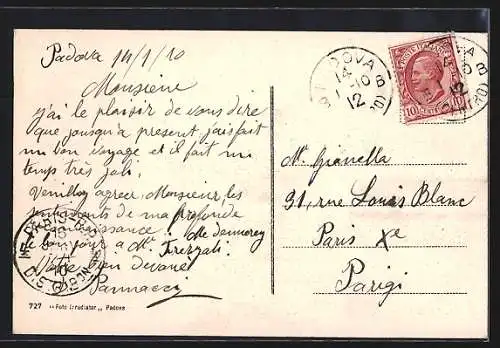 Padova 14/1/10
Monsieur
j'ai le plaisir de vous dire
que jousqu'a present, j'ais fait
un bon voyage et il fait un
temps très joli.
Veuillez agreer, Monsieur, les
sentiments de ma profonde
reconnaissance.
le bonjour à Mr.
Votre bien devoué
Pannacci
Mr. Gianella
31, rue Louis Blanc
Paris Xe
Parigi
PADOVA
14
1-10 8
12
POSTE ITALIANE
10 CENT 10
727 "Foto Irradiator" Padova